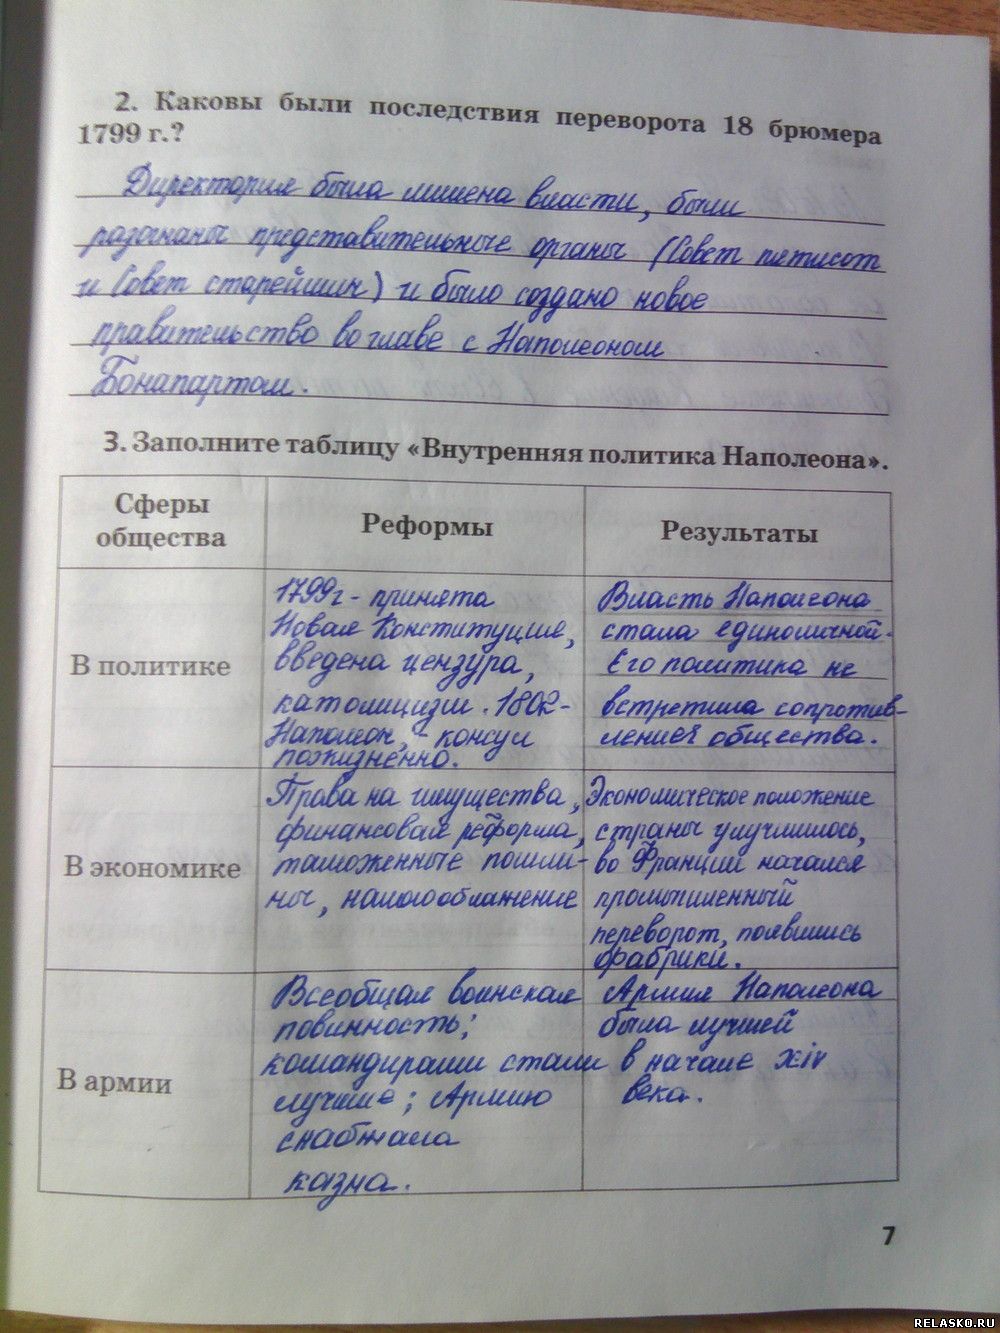 2. Каковы были последствия переворота 18 брюмера
1799 г.?
Директория была лишена власти, были
разогнаны представительные органы (Совет пятисот
и Совет старейшин) и было создано новое
правительство во главе с Наполеоном
Бонапартом.
3. Заполните таблицу «Внутренняя политика Наполеона».
Сферы
общества
Реформы
Результаты
В политике
1799г - принята
Новая Конституция,
введена цензура,
католицизм. 1802-
Наполеон, - консул
пожизненно.
Власть Наполеона
стала единоличной.
Его политика не
встретила сопротив-
ления общества.
В экономике
Права на имущества,
финансовая реформа,
таможенные пошли-
ны, налогообложение
Экономическое положение
страны улучшилось,
во Франции начался
промышленный
переворот, появились
фабрики.
В армии
Всеобщая воинская
повинность;
командирами стали
лучшие; Армию
снабжала
казна.
Армия Наполеона
была лучшей
в начале XIV
века.
7
RELASKO.RU